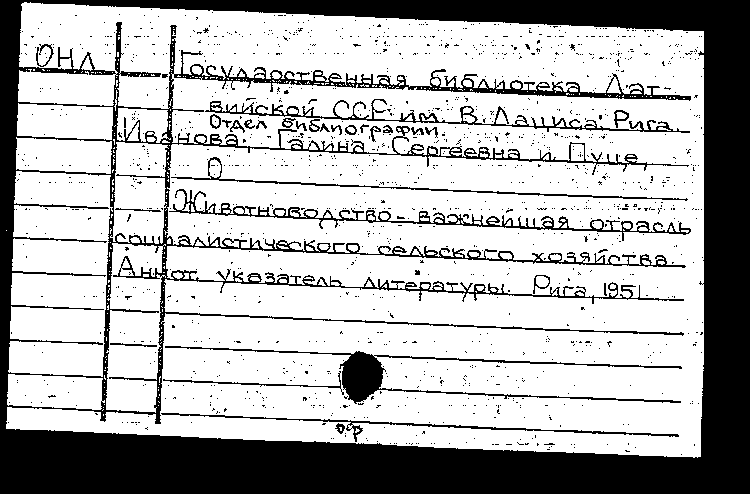 ОНЛ
Государственная библиотека Лат-
вийской ССР им. В. Лациса. Рига.
Отдел библиографии.
Иванова, Галина Сергеевна и Пуце,
О
Животноводство - важнейшая отрасль
социалистического сельского хозяйства.
Аннот. указатель литературы. Рига, 1951